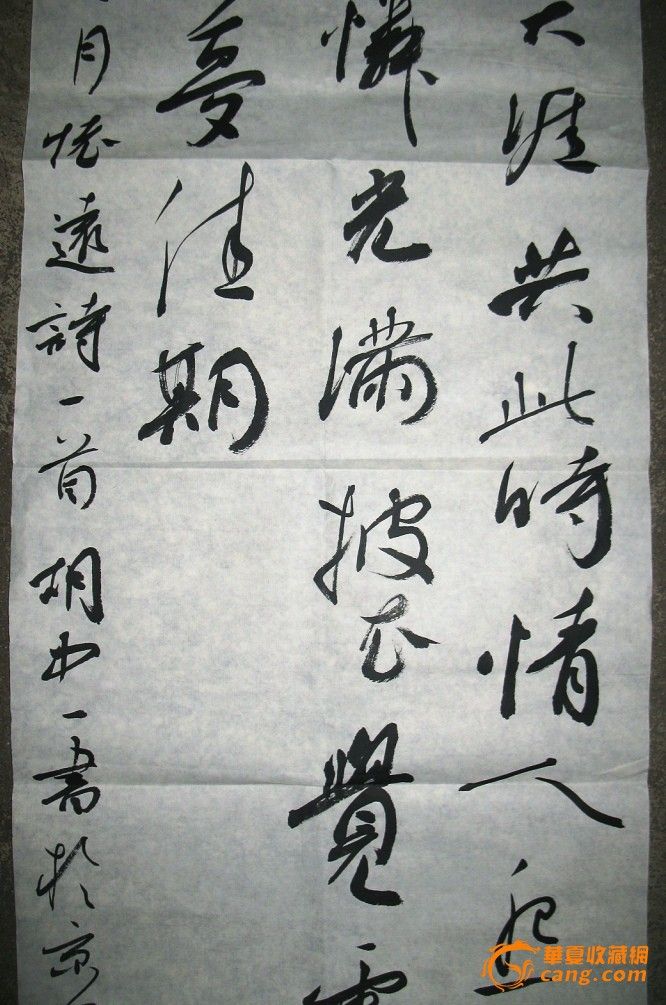 天涯共此時情人怨
憐光滿披衣覺露
夢佳期
月怀遠詩一首胡中一書於京
華夏收藏網
cang.com